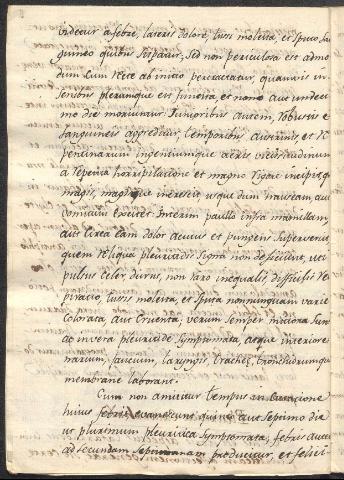 videatur a febre, lateris dolore, tussi molesta, et sputo, san
guineo quibus stipatur, sed non periculosa est admo
dum cum rite ab initio percuratur, quamvis in
senibus plerumque sit funesta, et nono aut undeci
mo die moriuntur. Junioribus autem, robustis e
sanguineis aggreditur, temporibus austrinis et re
pentinarum ingentiumque aëris vicissitudinum
a repenti horripilatione et magno rigore incipit, q
magis, magisque increscit usque dum nauseam, aut
vomitum excitet. Interim paullo infra mamillam,
aut circa eam dolor acutus et pungens supervenit
quem reliqua pleuritidis signa non deficiunt, uti
pulsus celer, durus, non raro inequalis, difficilis re
spiratio, tussis molesta, et sputa nonnunquam varie
colorata, aut cruenta; verum semper mitiora sunt
ac in vera pleuritide symptomata, atque interiore
narium, faucium, laryngis, tracheæ, bronchiorumque
membranæ laborant.
Cum non amittitur tempus in curatione
huius febris evanescunt quinto aut septimo die
ut plurimum pleuritica symptomata, febris autem
ad secundam septimanam producitur, et felici